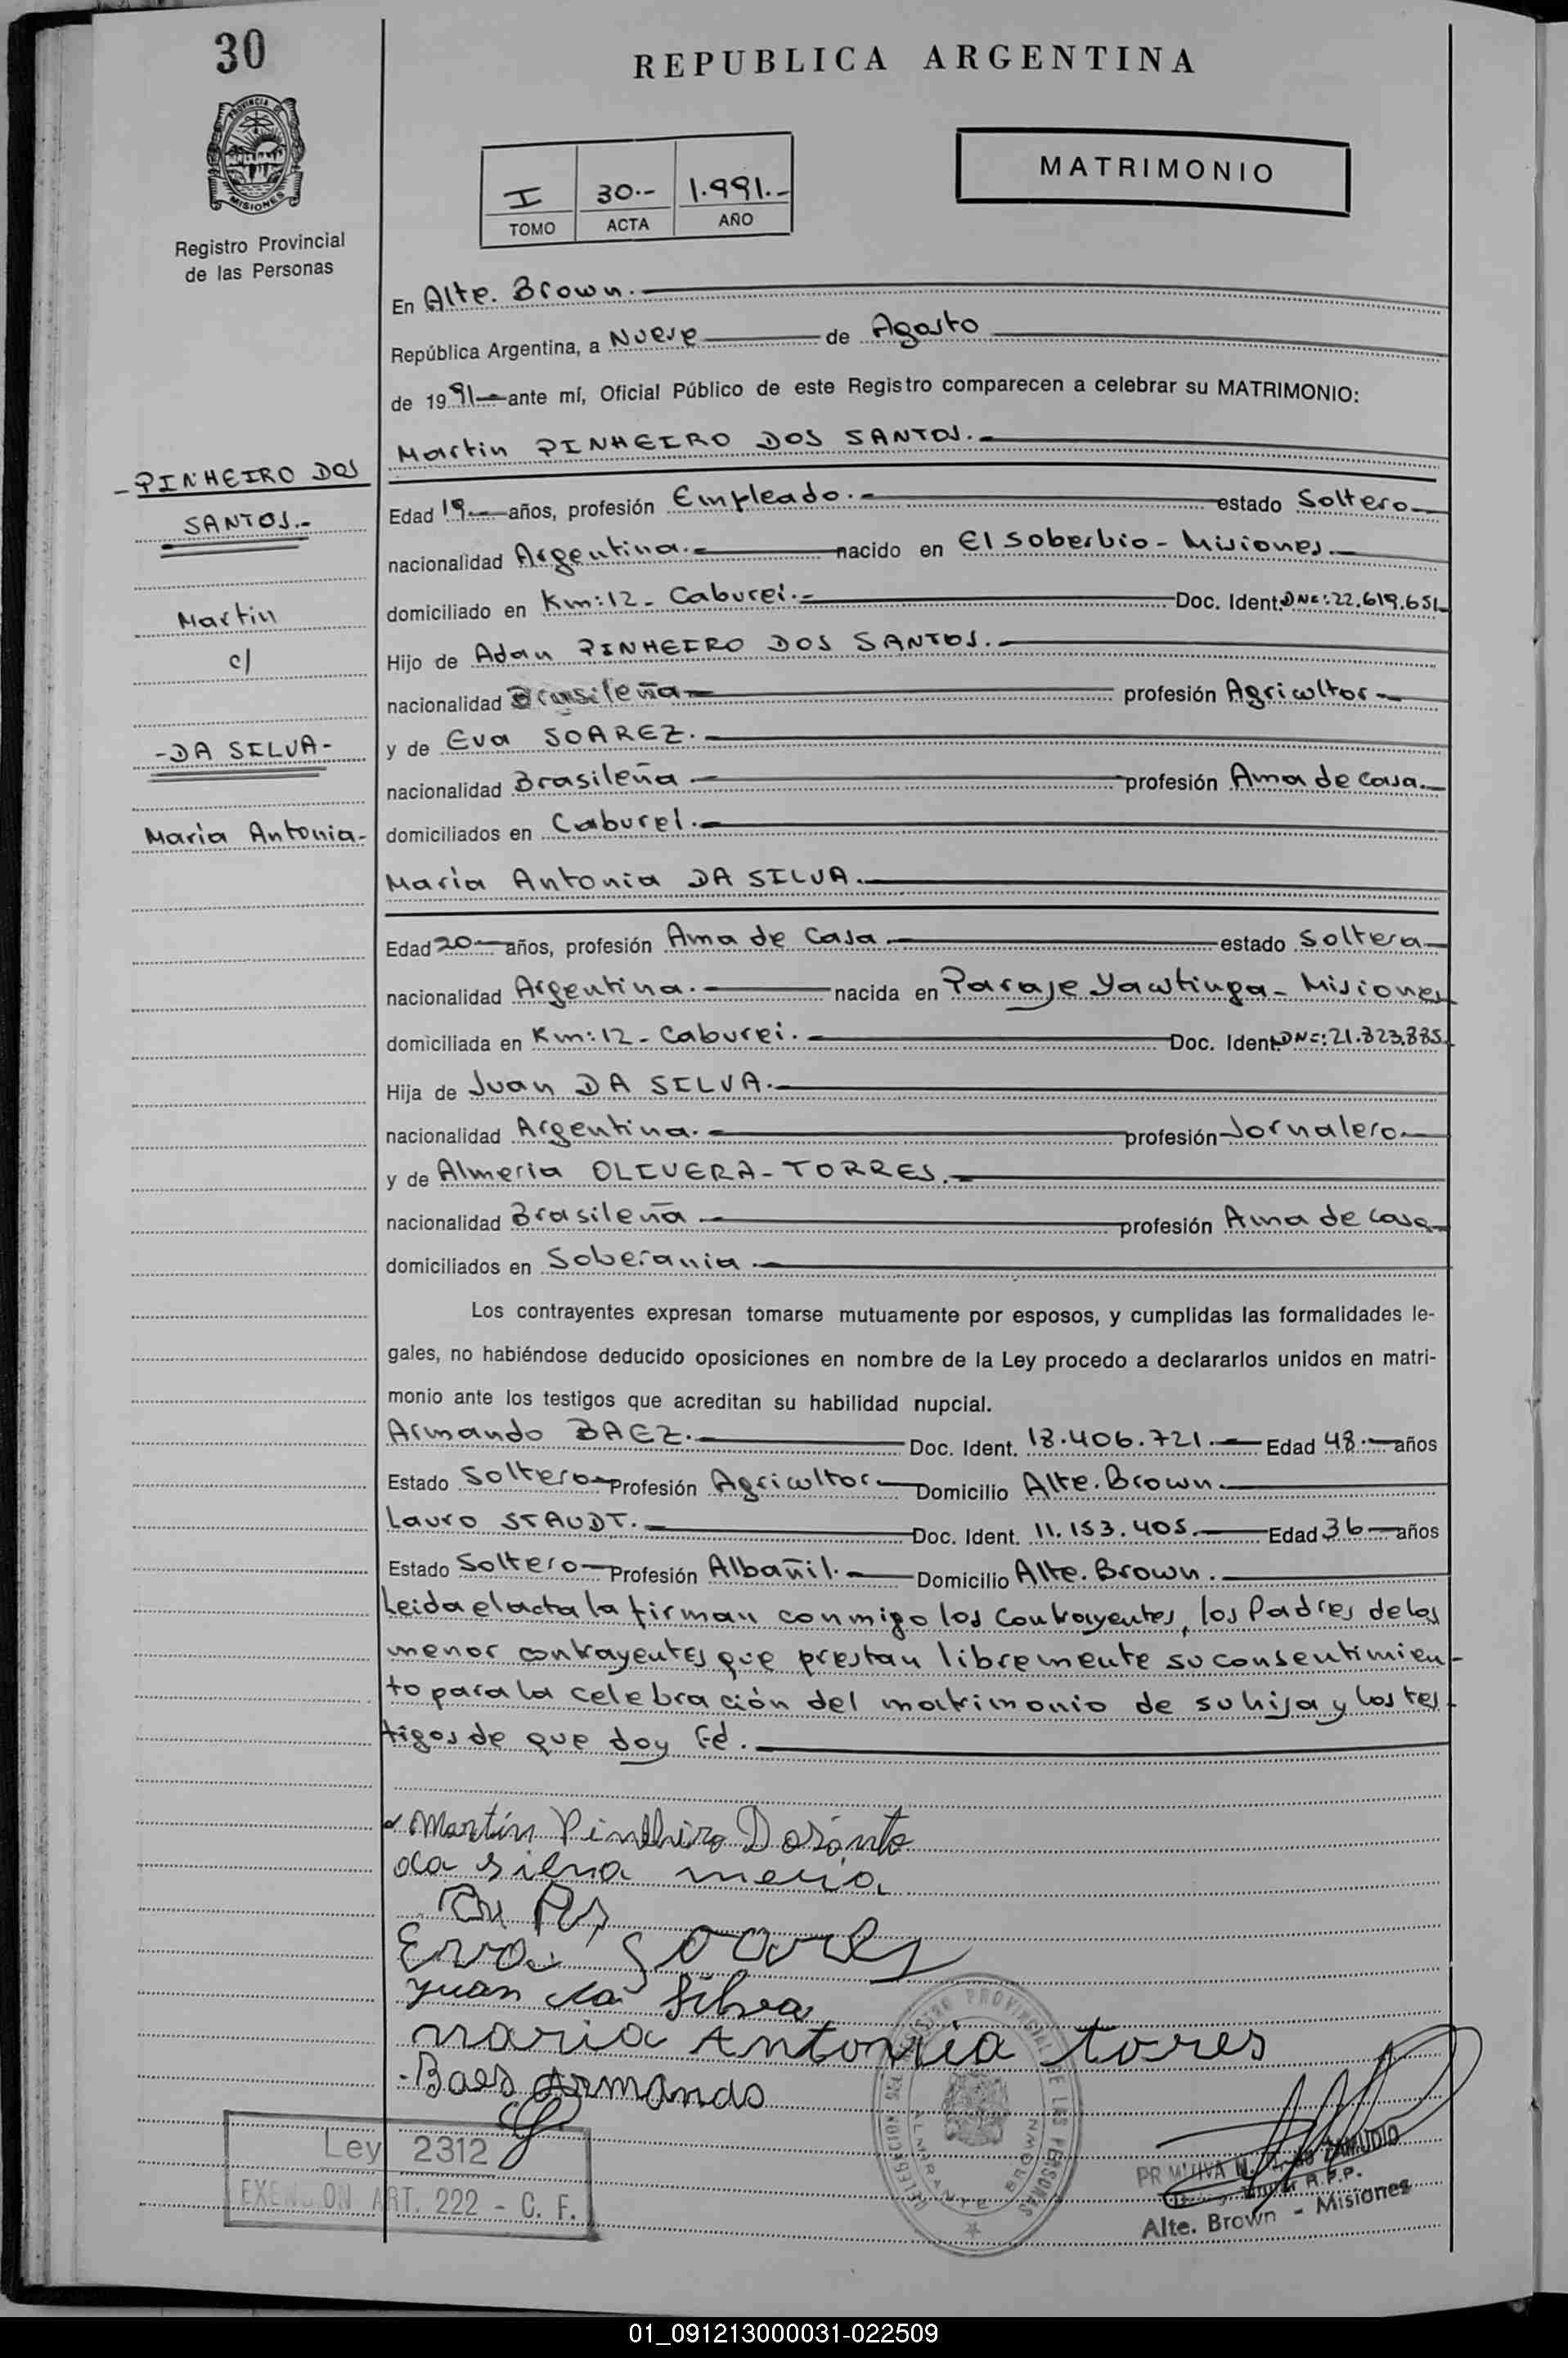 30
REPUBLICA ARGENTINA
PROVINCIA DE
MISIONES
Registro Provincial
de las Personas
MATRIMONIO
I 30.- 1.991.-
TOMO ACTA AÑO
En Alte. Brown.
República Argentina, a Nueve de Agosto
de 1991 ante mí, Oficial Público de este Registro comparecen a celebrar su MATRIMONIO:
Martin PINHEIRO DOS SANTOS.-
-PINHEIRO DOS
SANTOS.-
Martin
c/
-DA SILVA-
María Antonia-
Edad 19 años, profesión Empleado.- estado Soltero
nacionalidad Argentina.- nacido en El Soberbio - Misiones.
domiciliado en Km:12- Caburei.- Doc. Ident. DNI:22.619.651
Hijo de Adan PINHEIRO DOS SANTOS.-
nacionalidad Brasileña profesión Agricultor
y de Eva SOAREZ.
nacionalidad Brasileña profesión Ama de Casa.
domiciliados en Caburei.
María Antonia DA SILVA.
Edad 20 años, profesión Ama de Casa estado Soltera
nacionalidad Argentina. nacida en Paraje Yavotinga - Misiones
domiciliada en Km:12- Caburei. Doc. Ident. DNI:21.823.885
Hija de Juan DA SILVA.
nacionalidad Argentina. profesión Jornalero
y de Almeria OLIVERA-TORRES.
nacionalidad Brasileña profesión Ama de Casa
domiciliados en Soberania
Los contrayentes expresan tomarse mutuamente por esposos, y cumplidas las formalidades le-
gales, no habiéndose deducido oposiciones en nombre de la Ley procedo a declararlos unidos en matri-
monio ante los testigos que acreditan su habilidad nupcial.
Armando BAEZ. Doc. Ident. 18.406.721. Edad 48. años
Estado Soltero Profesión Agricultor Domicilio Alte. Brown.
Lauro STAUDT. Doc. Ident. 11.153.405. Edad 36 años
Estado Soltero Profesión Albañil. Domicilio Alte. Brown.
Leida el acta la firman conmigo los Contrayentes, los Padres de los
menor contrayentes que prestan libremente su consentimien-
to para la celebración del matrimonio de su hija y los tes-
tigos de que doy Fé.
Martín Pinheiro Dosánto
da silva meria
Erva Soares
Juan da Silva
maria Antonia torres
-Baes Armando
Ley 2312
EXENCION ART. 222 - C. F.
DELEGACION DEL REGISTRO PROVINCIAL DE LAS PERSONAS
ALMIRANTE BROWN
PRIMITIVA ZAMUDIO
R.P.P.
Alte. Brown - Misiones
01_091213000031-022509